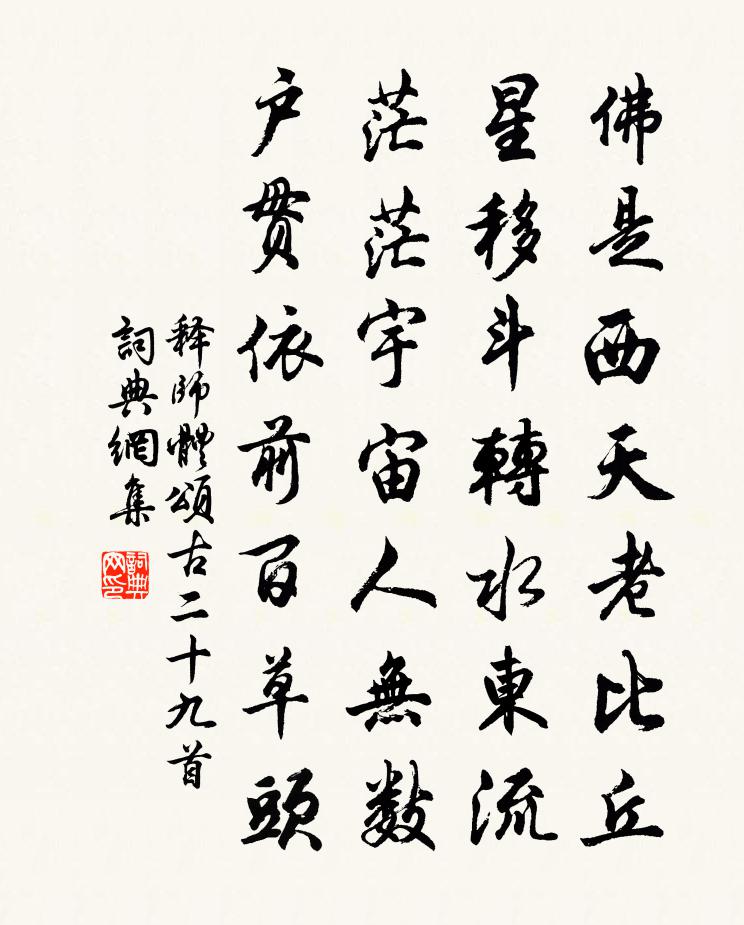 佛是西天老比丘
星移斗轉水東流
茫茫宇宙人無數
户貫依前百草頭
释師體頌古二十九首
詞典網集
詞典网印